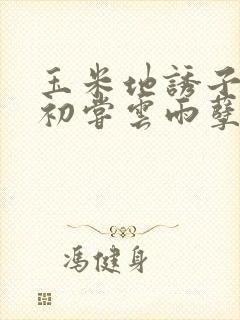 玉米地誘子
初嘗雲雨孽
馮健身